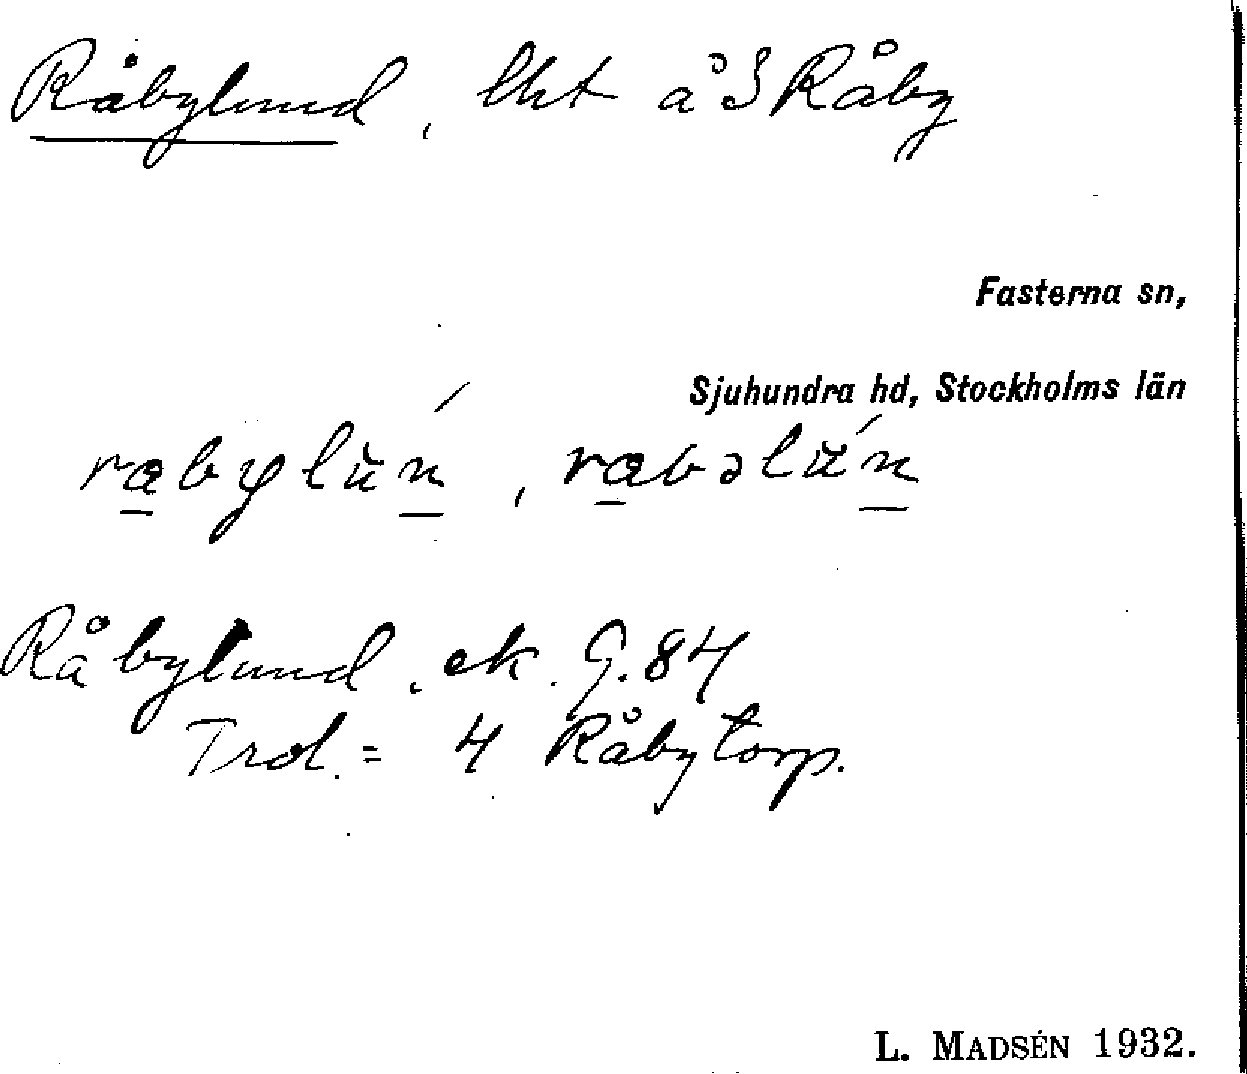 Råbylund, lht å S Råby
Fasterna sn,
Sjuhundra hd, Stockholms län
ræbylun, ræbəlun
Råbylund. ek. G. 84
Trol. = 4 Råbytorp.
L. MADSÉN 1932.